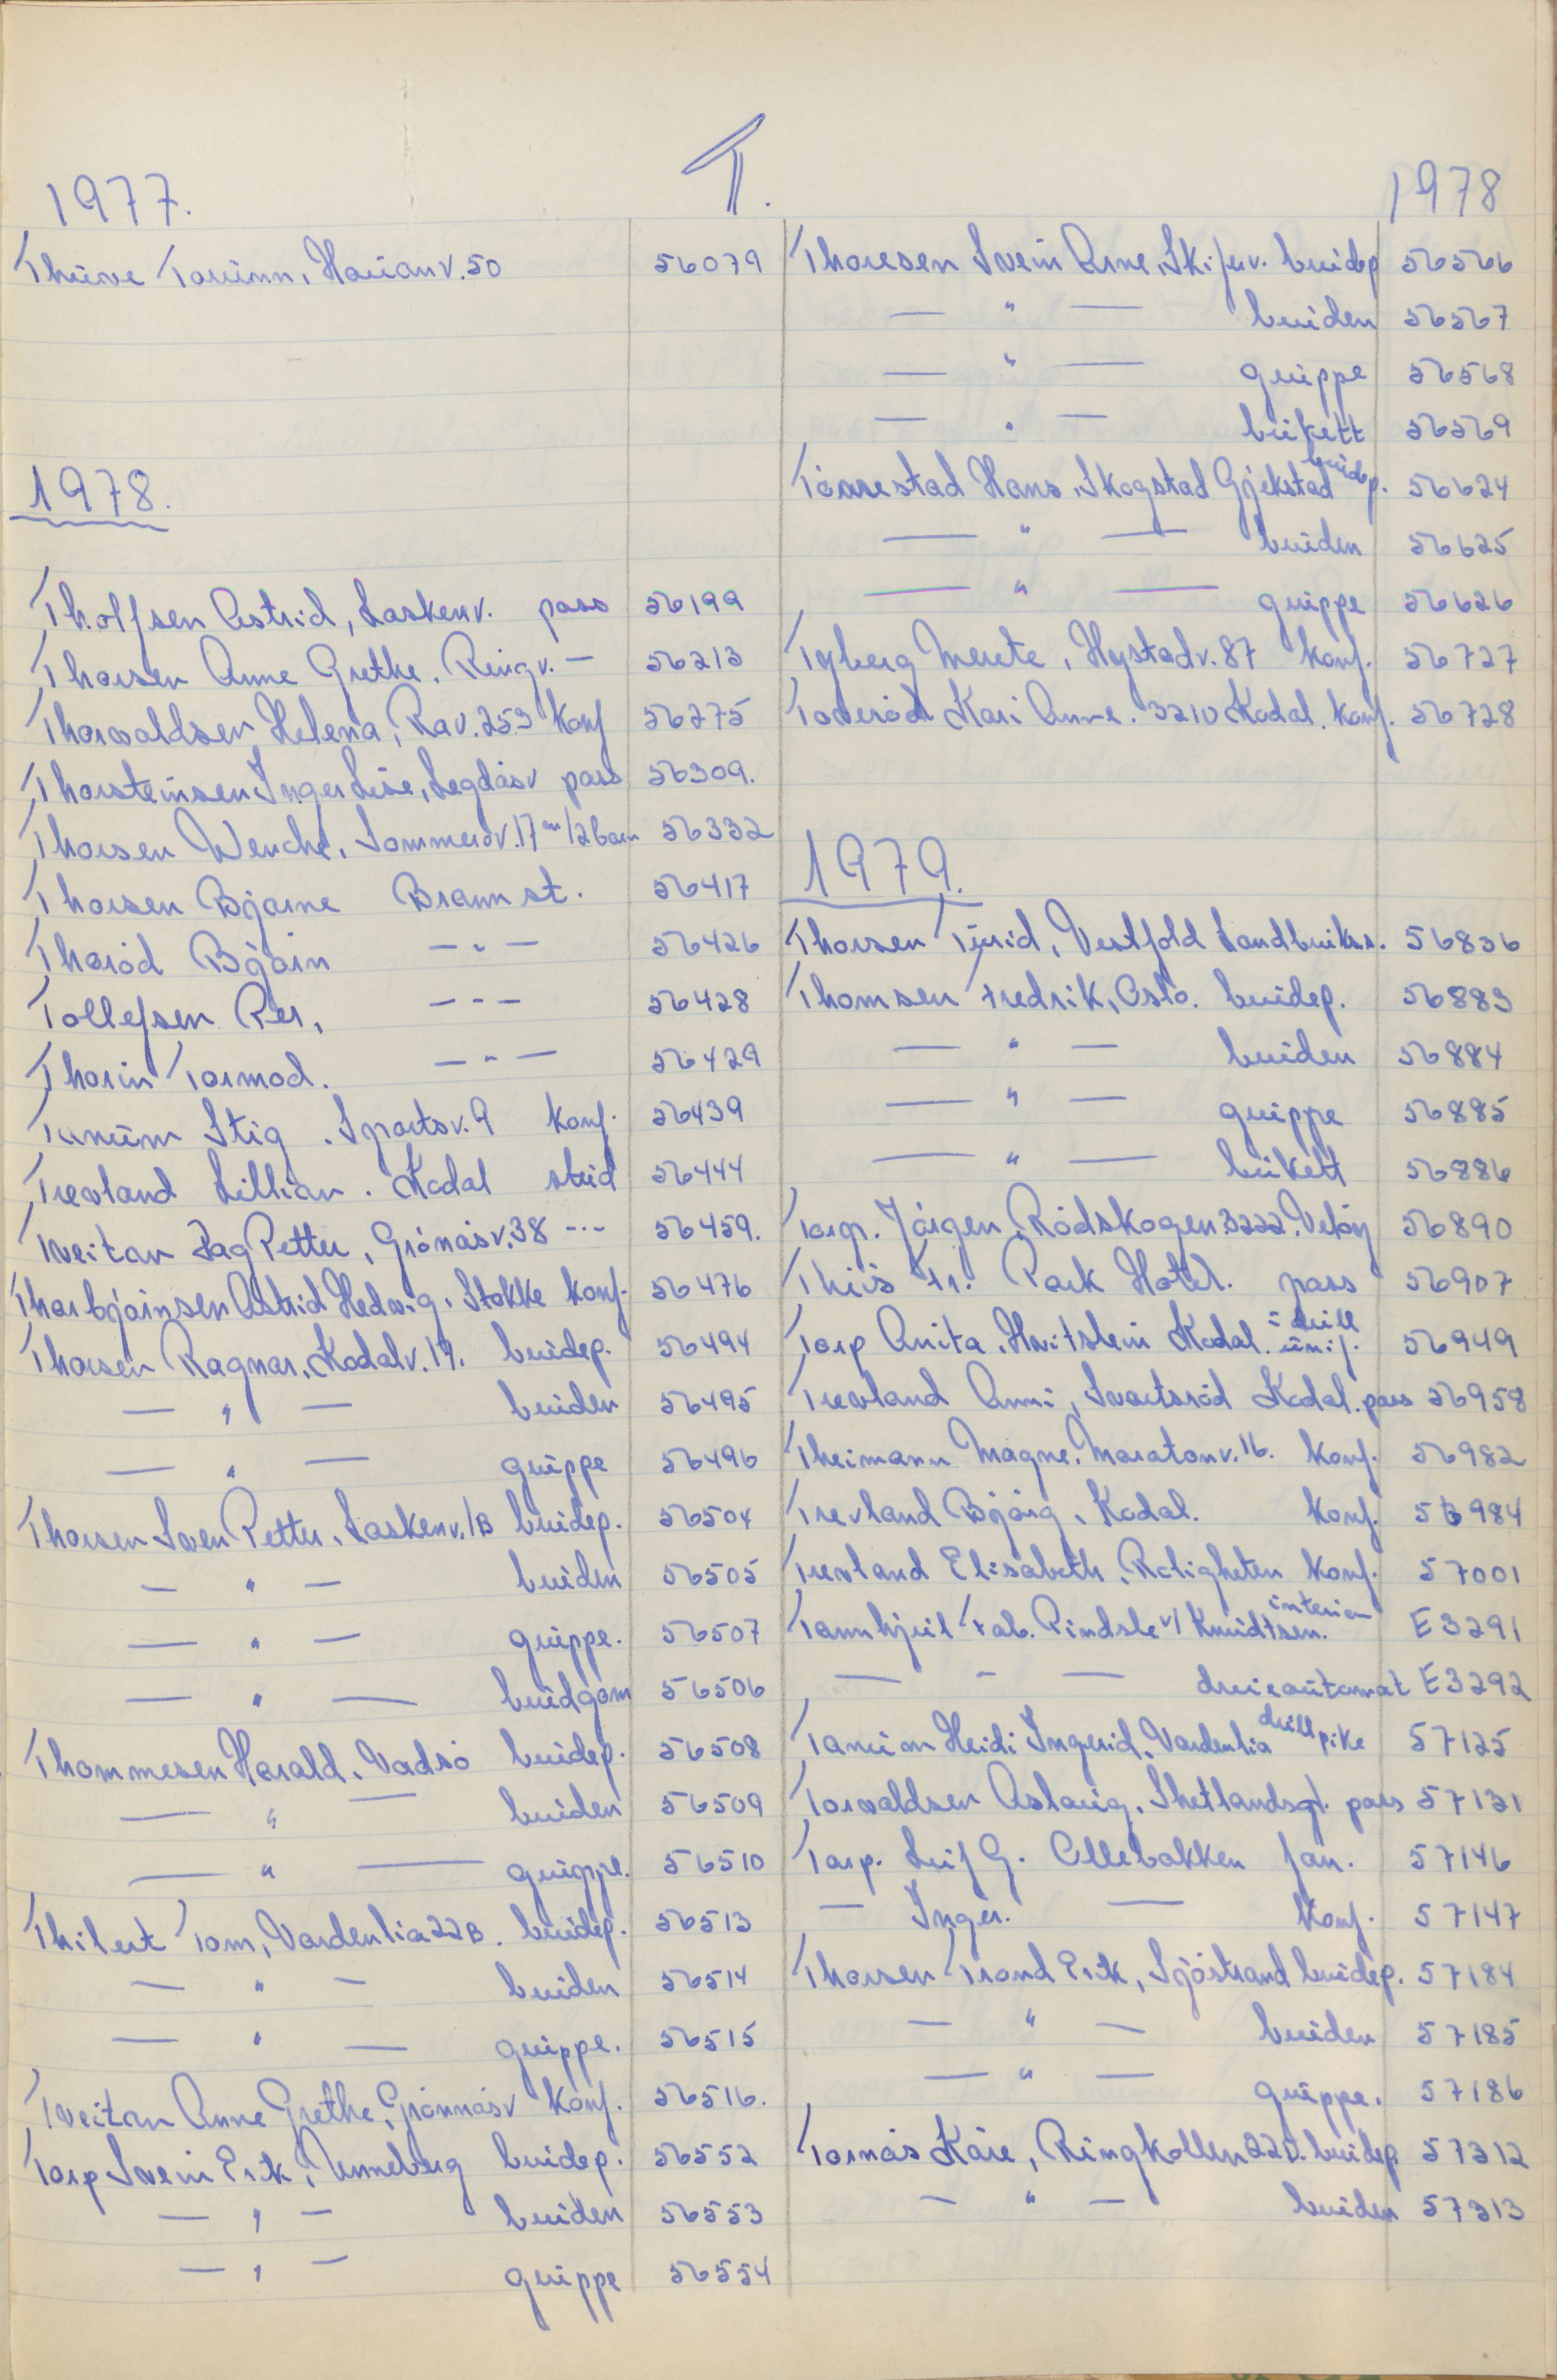 T.
1977.
Thüve Torunn, Hauanv. 50 56079
1978.
Tholfsen Astrid, Laskenv. pass 56199
Thorsen Anne Grethe. Ringv. — 56213
Thorvaldsen Helena, Rav. 253 konf 56275
Thorsteinsen Inger Lise, Legdåsv pass 56309.
Thorsen Wenche, Sommerov. 17 m/2barn 56332
Thorsen Bjarne Brannst. 56417
Thoröd Björn — " — 56426
Tollefsen Per, — " — 56428
Thorin Tormod. — " — 56429
Tanüm Stig. Sportsv. 9 konf. 56439
Trevland Lillian. Kodal stud 56444
Tveitan Dag Petter, Grönåsv. 38 — " — 56459.
Thorbjörnsen Astrid Hedvig. Stokke konf. 56476
Thorsen Ragnar, Kodalv. 19. brüdep. 56494
— " — brüden 56495
— " — grüppe 56496
Thorsen Sven Petter. Laskenv. 1B brüdep. 56504
— " — brüden 56505
— " — grüppe. 56507
— " — brüdgom 56506
Thommesen Harald. Vadsö brüdep. 56508
— " — brüden 56509
— " — grüppe. 56510
Thilert Tom, Vardenlia 22B. brüdep. 56513
— " — brüden 56514
— " — grüppe. 56515
Tveitan Anne Grethe, Grönnåsv konf. 56516.
Torp Svein Erik, Unneberg brüdep. 56552
— " — brüden 56553
— " — grüppe 56554
1978
Thoresen Svein Arne, Skiferv. brüdep 56566
— " — brüden 56567
— " — grüppe 56568
— " — bükett 56569
Tönnestad Hans, Skogstad Gjekstad brüdep. 56624
— " — brüden 56625
— " — grüppe 56626
Tyberg Merete, Hystadv. 87 konf. 56727
Toveröd Kari Anne. 3210 Kodal. konf. 56728
1979.
Thorsen Türid, Vestfold Landbrüks. 56836
Thomsen Fredrik, Oslo. brüdep. 56883
— " — brüden 56884
— " — grüppe 56885
— " — bükett 56886
Torp. Jörgen, Rödskogen. 3222. Velöy 56890
Thiis Fr. Park Hotel. pass 56907
Torp Anita. Hvitstein Kodal. i drill ünif. 56949
Trevland Anni, Svartsröd Kodal. pass 56958
Theimann Magne. Maratonv. 16. konf. 56982
Trevland Björg, Kodal. konf. 56984
Trevland Elisabeth. Roligheten konf. 57001
Tannhjül Fab. Pindsle v/ Knüdtsen. interiør E3291
— " — dreieaütomat E3292
Tanüm Heidi Ingerid. Vardenlia drillpike 57125
Torvaldsen Aslaüg, Shetlandsgt. pass 57131
Torp. Leif G. Ollebakken fam. 57146
— Inger. — konf. 57147
Thorsen Trond Erik, Sjöstrand brüdep. 57184
— " — brüden 57185
— " — grüppe. 57186
Tornås Kåre, Ringkollen 22D. brüdep. 57312
— " — brüden 57313